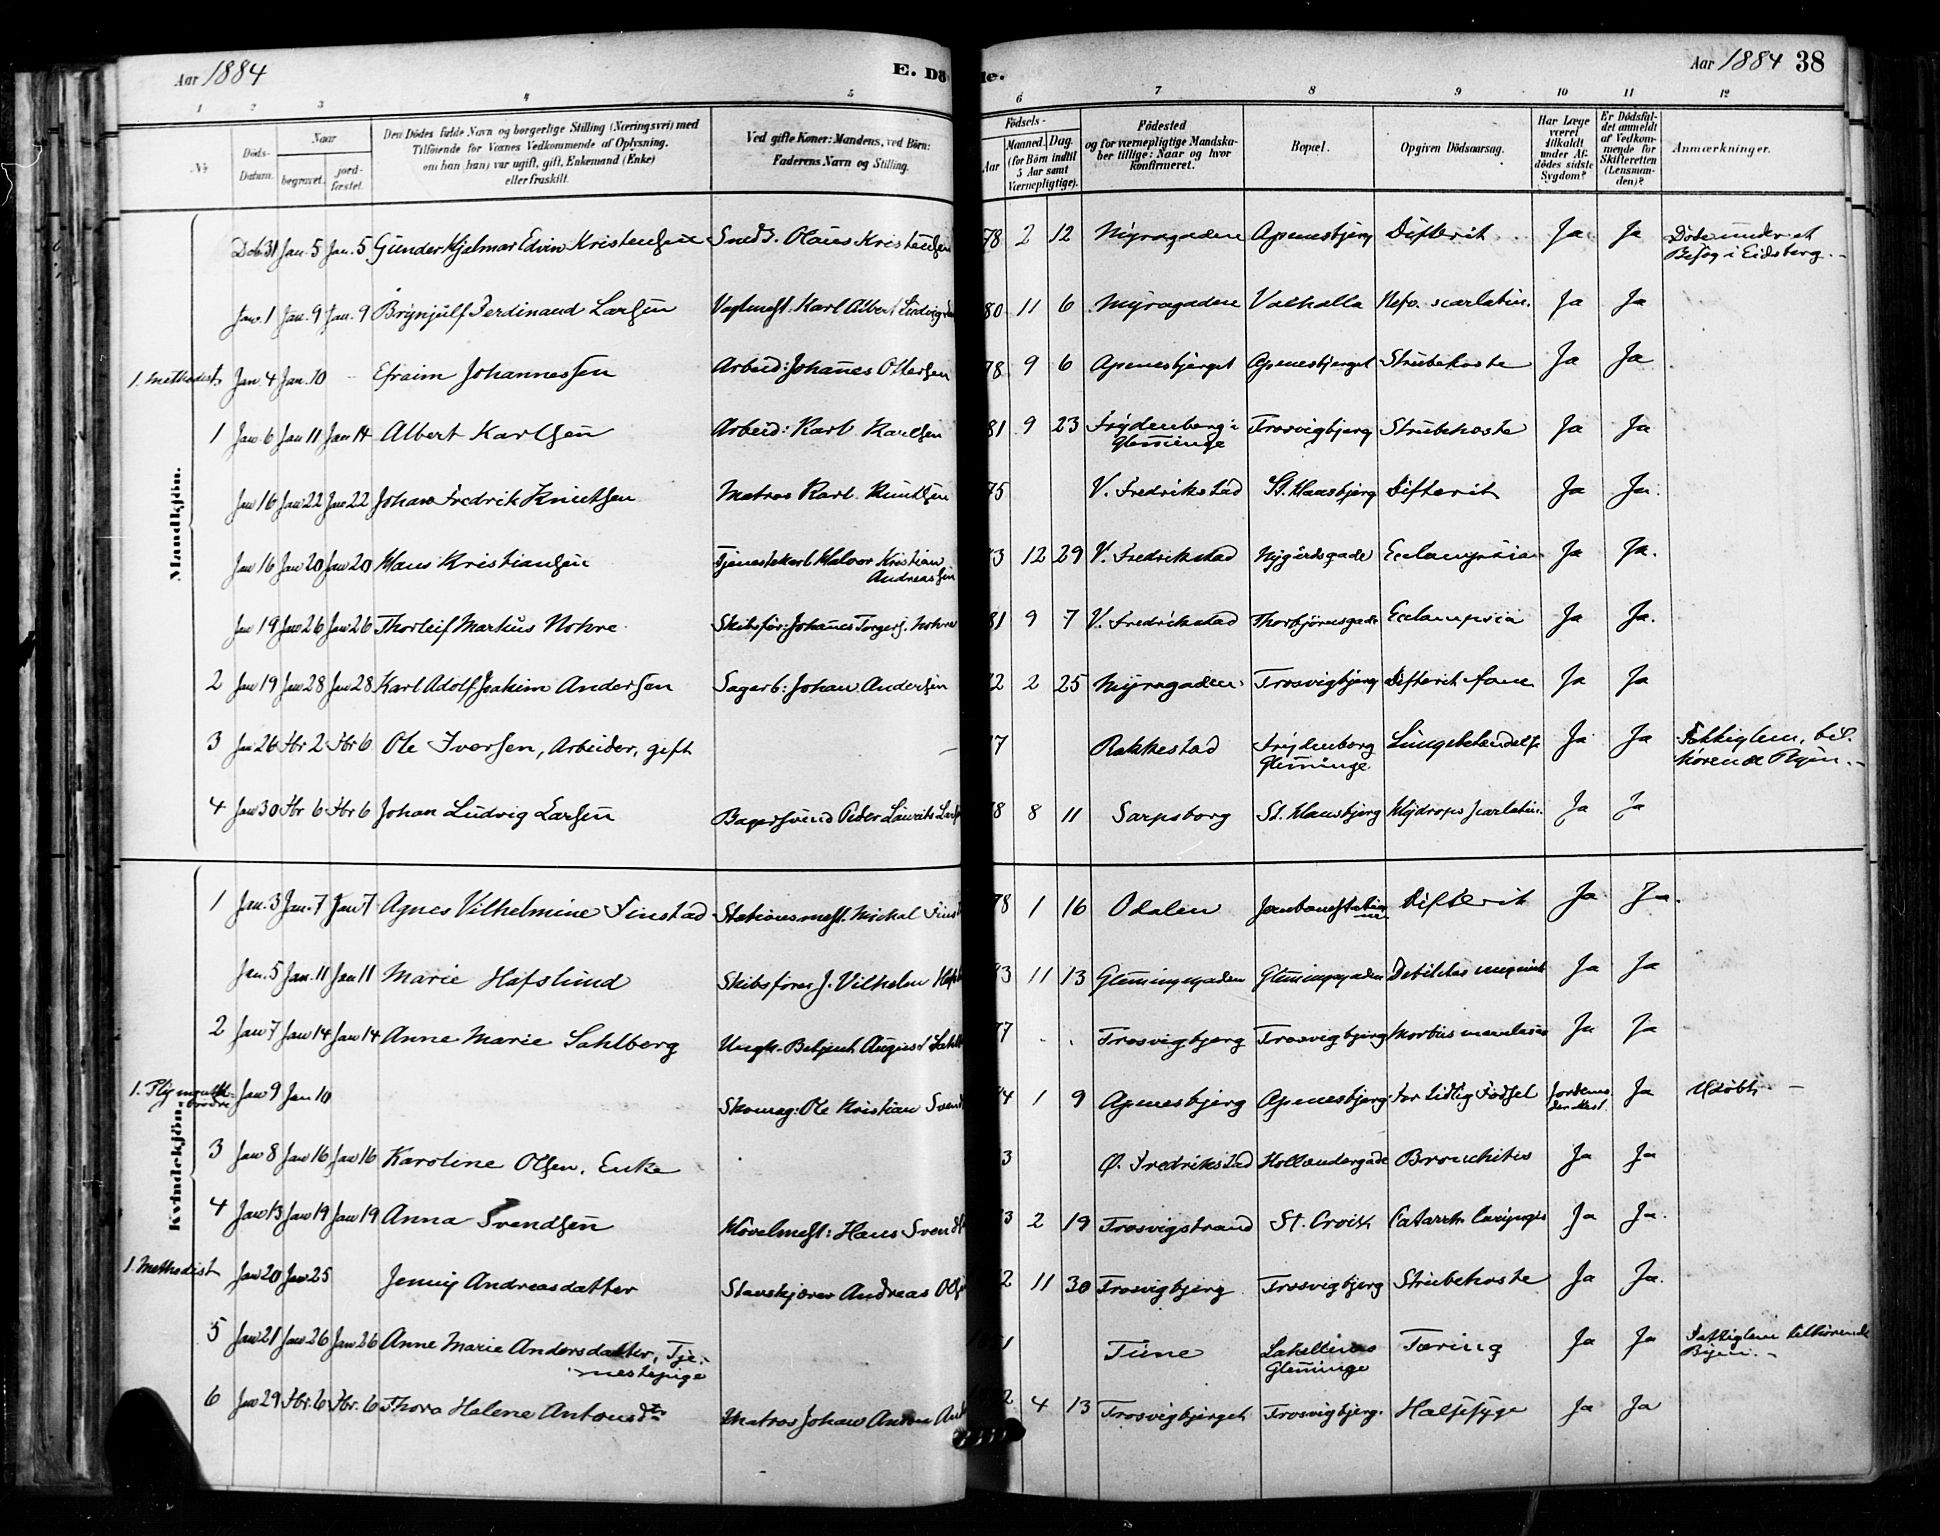 Aar 1884
E. Dö
de.
Aar 1884 38
1 2 3 4 5 6 7 8 9 10 11 12
№
Döds-Datum.
Naar
begravet.
jord-fæstet.
Den Dödes fulde Navn og borgerlige Stilling (Næringsvei) med
Tilföiende for Voxnes Vedkommende af Oplysning,
om han (hun) var ugift, gift, Enkemand (Enke)
eller fraskilt.
Ved gifte Koner: Mandens, ved Börn:
Faderens Navn og Stilling.
Födsels-
Aar
Maaned. Dag.
(for Börn indtil
5 Aar samt
Værnepligtige).
Födested
og for værnepligtige Mandska-
ber tillige: Naar og hvor
konfirmeret.
Bopæl.
Opgiven Dödsaarsag.
Har Læge
været
tilkaldt
under Af-
dödes sidste
Sygdom?
Er Dödsfal-
det anmeldt
af Vedkom-
mende for
Skifteretten
(Lensman-
den)?
Anmærkninger.
Mandkjön.
Dcb. 31 Jan. 5 Jan. 5 Gunder Hjelmar Edvin Kristensen Sneds. Olaus Kristensen 78 2 12 Myragaden Apenesbjerg Difterit Ja Ja Døde under et
Besøg i Eidsberg.
Jan. 1 Jan. 9 Jan. 9 Brynjulf Ferdinand Larsen Vagtmest. Karl Albert Ludvig 80 11 6 Myragaden Valhalla Nefr. scarlatin. Ja Ja
1. Methodist Jan. 4 Jan. 10 Efraim Johannessen Arbeid: Johanes Ottersen 78 9 6 Apenesbjerget Apenesbjerget Strubehoste Ja Ja
1 Jan. 6 Jan 11 Jan 14 Albert Karlsen Arbeid: Karl Karlsen 81 9 23 Frydenberg i
Glemminge Trosvigbjerg Strubehoste Ja Ja
Jan 16 Jan 22 Jan 22 Johan Fredrik Knutsen Matros Karl Knutsen 75 V. Fredrikstad St. Hansbjerg Difterit Ja Ja.
Jan 16 Jan 20 Jan 20 Hans Kristiansen Tjenestekarl Halvor Kristian
Andreassen 3 12 29 V. Fredrikstad Nygårdsgade Eclampsia Ja Ja.
Jan 19 Jan 26 Jan 26 Thorleif Martius Nohre Skibsför: Johanes Torgers. Nohre 81 9 7 V. Fredrikstad Thorbjörnsgade Eclampsia Ja Ja.
2 Jan 19 Jan 28 Jan 28 Karl Adolf Joakim Andersen Sagarb: Johan Andersen 2 2 25 Myragaden Trosvigbjerg Difterit Ja Ja
3 Jan 26 Fbr 2 Fbr 6 Ole Iversen, Arbeider, gift — 7 Rakkestad Frydenborg
Glemminge Lungebetændelse Ja Ja Fattiglem, til-
hørende Byen.
4 Jan 30 Fbr 6 Fbr 6 Johan Ludvig Larsen Bagersvend Peder Laurits 78 8 11 Sarpsborg St. Hansbjerg Hydrops scarlatin. Ja Ja
Kvindekjön.
1 Jan. 3 Jan. 7 Jan 7 Agnes Vilhelmine Finstad Stationsmest. Mickal 78 1 16 Odalen Jernbanestationen Difterit Ja Ja.
Jan. 5 Jan. 11 Jan 11 Marie Hafslund Skibsfører J. Vilhelm 3 11 13 Glemingegaden Glemingegaden Debilitas Ja Ja
2 Jan 7 Jan 14 Jan 14 Anne Marie Sahlberg Ungk. Betjent August 77 Trosvigbjerg Trosvigbjerg Morbus maculosus Ja Ja
1. Plymouth-
brodre Jan 9 Jan 10 Skomag: Ole Kristian 4 1 9 Apenesbjerg Apenesbjerg For tidlig Födsel Jordemo-
der Attest Ja Udöbt —
3 Jan 8 Jan 16 Jan 16 Karoline Olsen, Enke 3 Ø. Fredrikstad Hollændergade Bronchitis Ja Ja
4 Jan 13 Jan 19 Jan 19 Anna Svendsen Hövelmest: Hans 3 2 19 Trosvigstrand St. Croix Catarrh. Laryngis Ja Ja.
1. Methodist Jan 20 Jan 25 Jenny Andreasdatter Stenskjærer Andreas 2 11 30 Trosvigbjerg Trosvigbjerg Strubehoste Ja Ja.
5 Jan 21 Jan 26 Jan 26 Anne Marie Andersdatter, Tje-
nestepige 1 Tune Lahellinas
Glemminge Tæring Ja Ja Fattiglem tilhørende
Byen. —
6 Jan 29 Fbr. 6 Fbr. 6 Thora Helene Antonsdtr Matros Johan Anton 2 4 13 Trosvigbjerget Trosvigbjerg. Halssyge Ja Ja